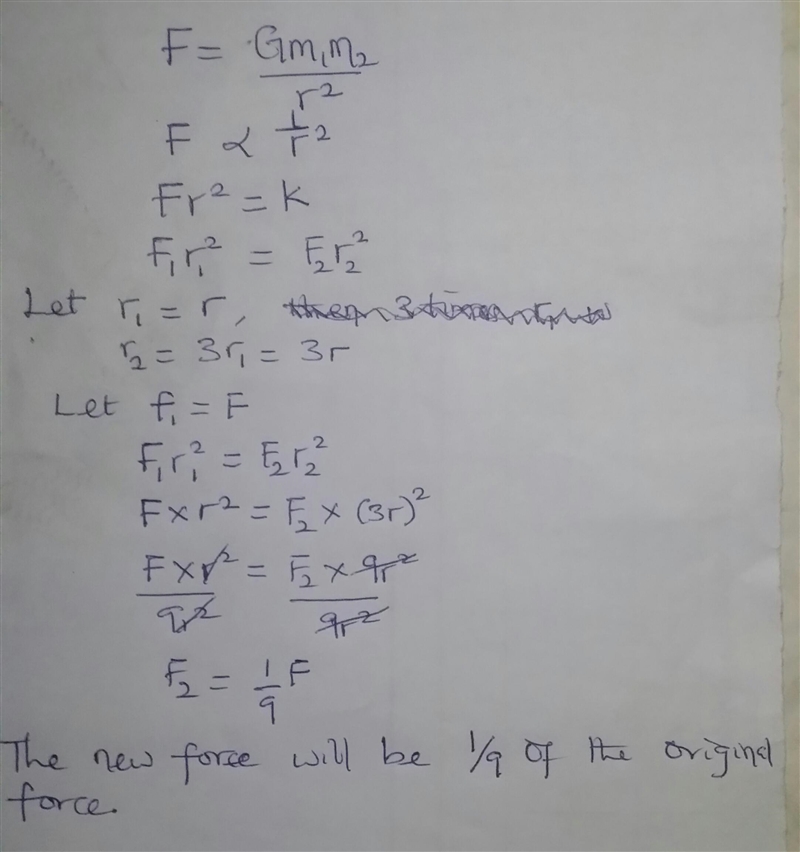 F = Gm₁m₂
r²
F ∝ 1/r²
Fr² = k
F₁r₁² = F₂r₂²
Let r₁ = r,
r₂ = 3r₁ = 3r
Let f₁ = F
F₁r₁² = F₂r₂²
F×r² = F₂ × (3r)²
F×r² = F₂ × 9r²
9r² 9r²
F₂ = 1/9 F
The new force will be 1/9 of the original
force.